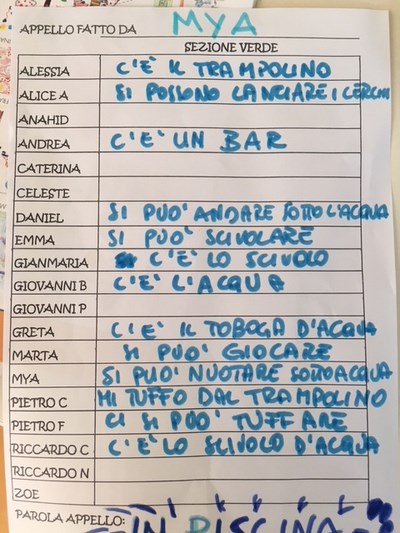 APPELLO FATTO DA MYA
SEZIONE VERDE
ALESSIA C'È IL TRAMPOLINO
ALICE A SI POSSONO LANCIARE I CERCHI
ANAHID
ANDREA C'È UN BAR
CATERINA
CELESTE
DANIEL SI PUÒ ANDARE SOTTO L'ACQUA
EMMA SI PUÒ SCIVOLARE
GIANMARIA C'È LO SCIVOLO
GIOVANNI B C'È L'ACQUA
GIOVANNI P
GRETA C'È IL TOBOGA D'ACQUA
MARTA SI PUÒ GIOCARE
MYA SI PUÒ NUOTARE SOTTOACQUA
PIETRO C MI TUFFO DAL TRAMPOLINO
PIETRO F CI SI PUÒ TUFFARE
RICCARDO C C'È LO SCIVOLO D'ACQUA
RICCARDO N
ZOE
PAROLA APPELLO: IN PISCINA